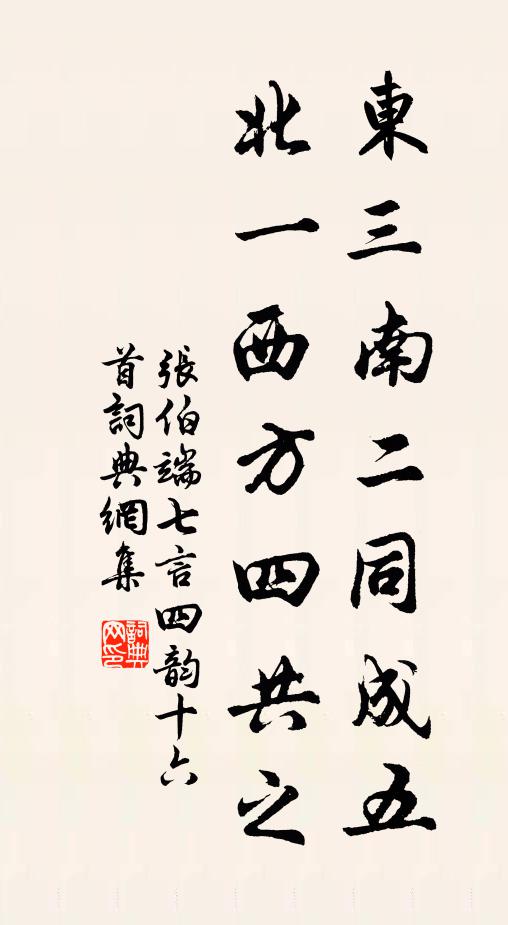 東三南二同成五
北一西方四共之
張伯端七言四韵十六
首詞典網集
詞典
网印